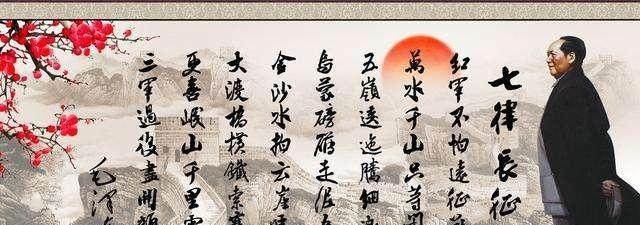 七律長征
紅軍不怕遠征
萬水千山只等
五嶺逶迤騰細
烏蒙磅礴走泥
金沙水拍云崖
大渡橋橫鐵索
更喜岷山千里
三軍過後盡開顏
毛澤